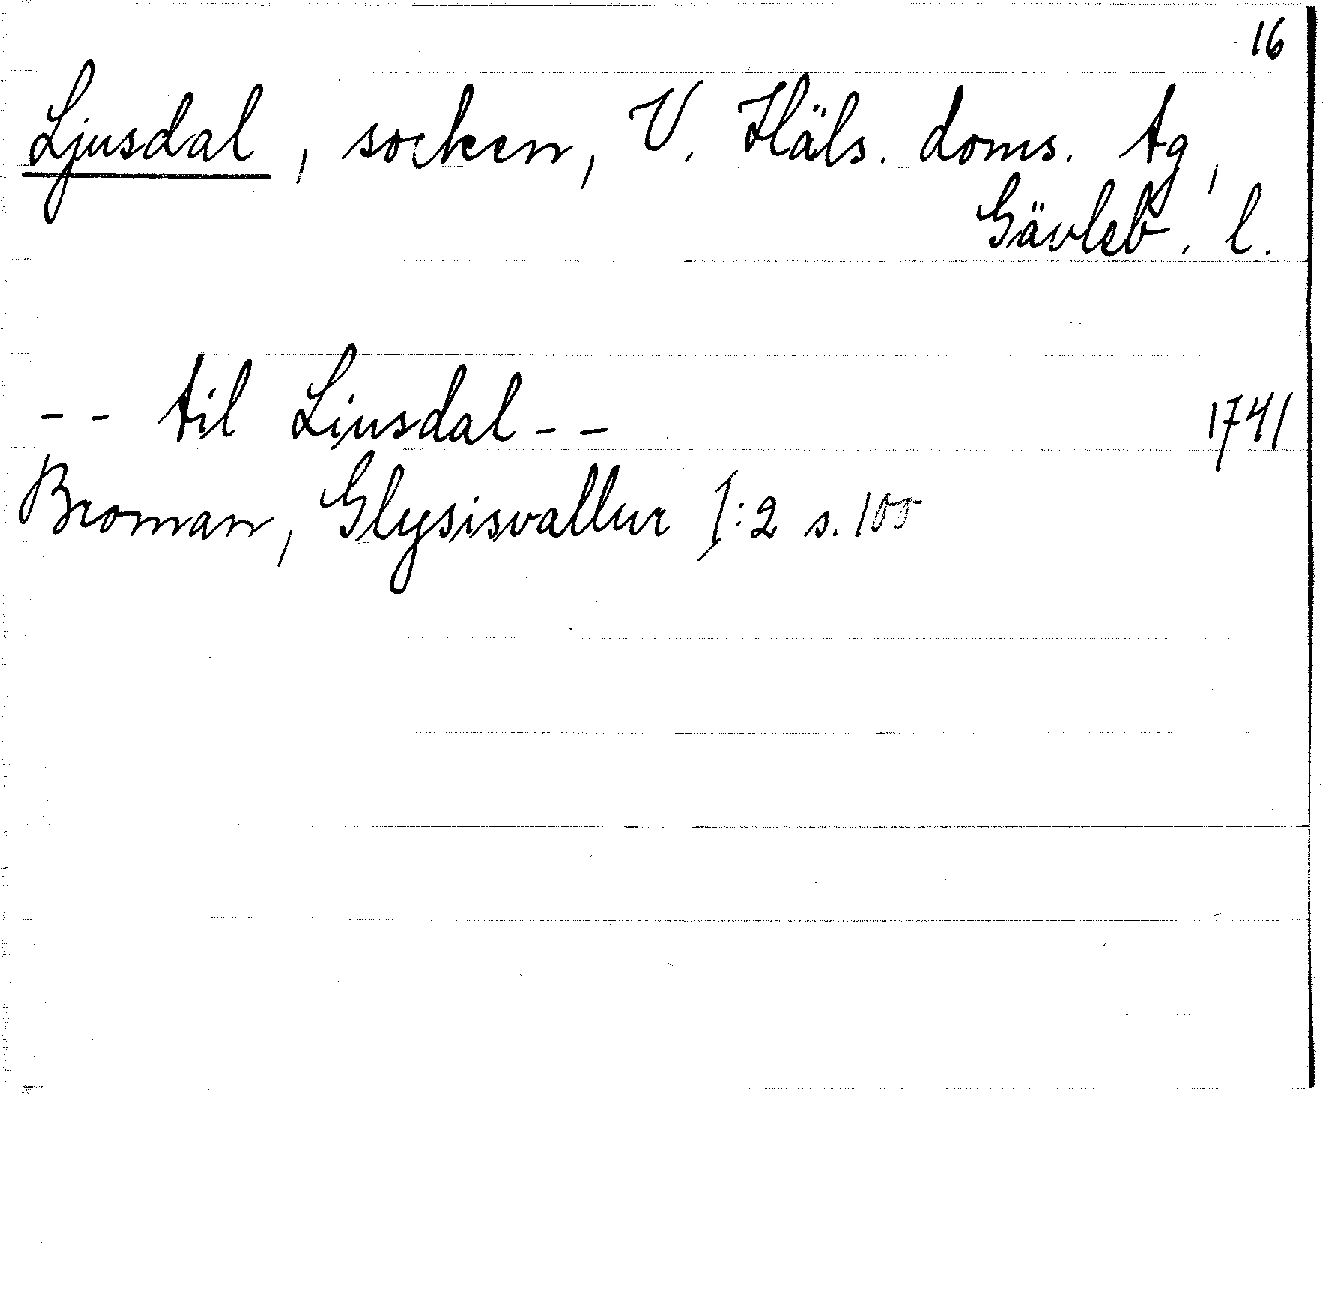 16
Ljusdal, socken, V. Häls. doms. tg,
Gävleb. l.
-- til Liusdal -- 1741
Broman, Glysisvallur I:2 s. 100